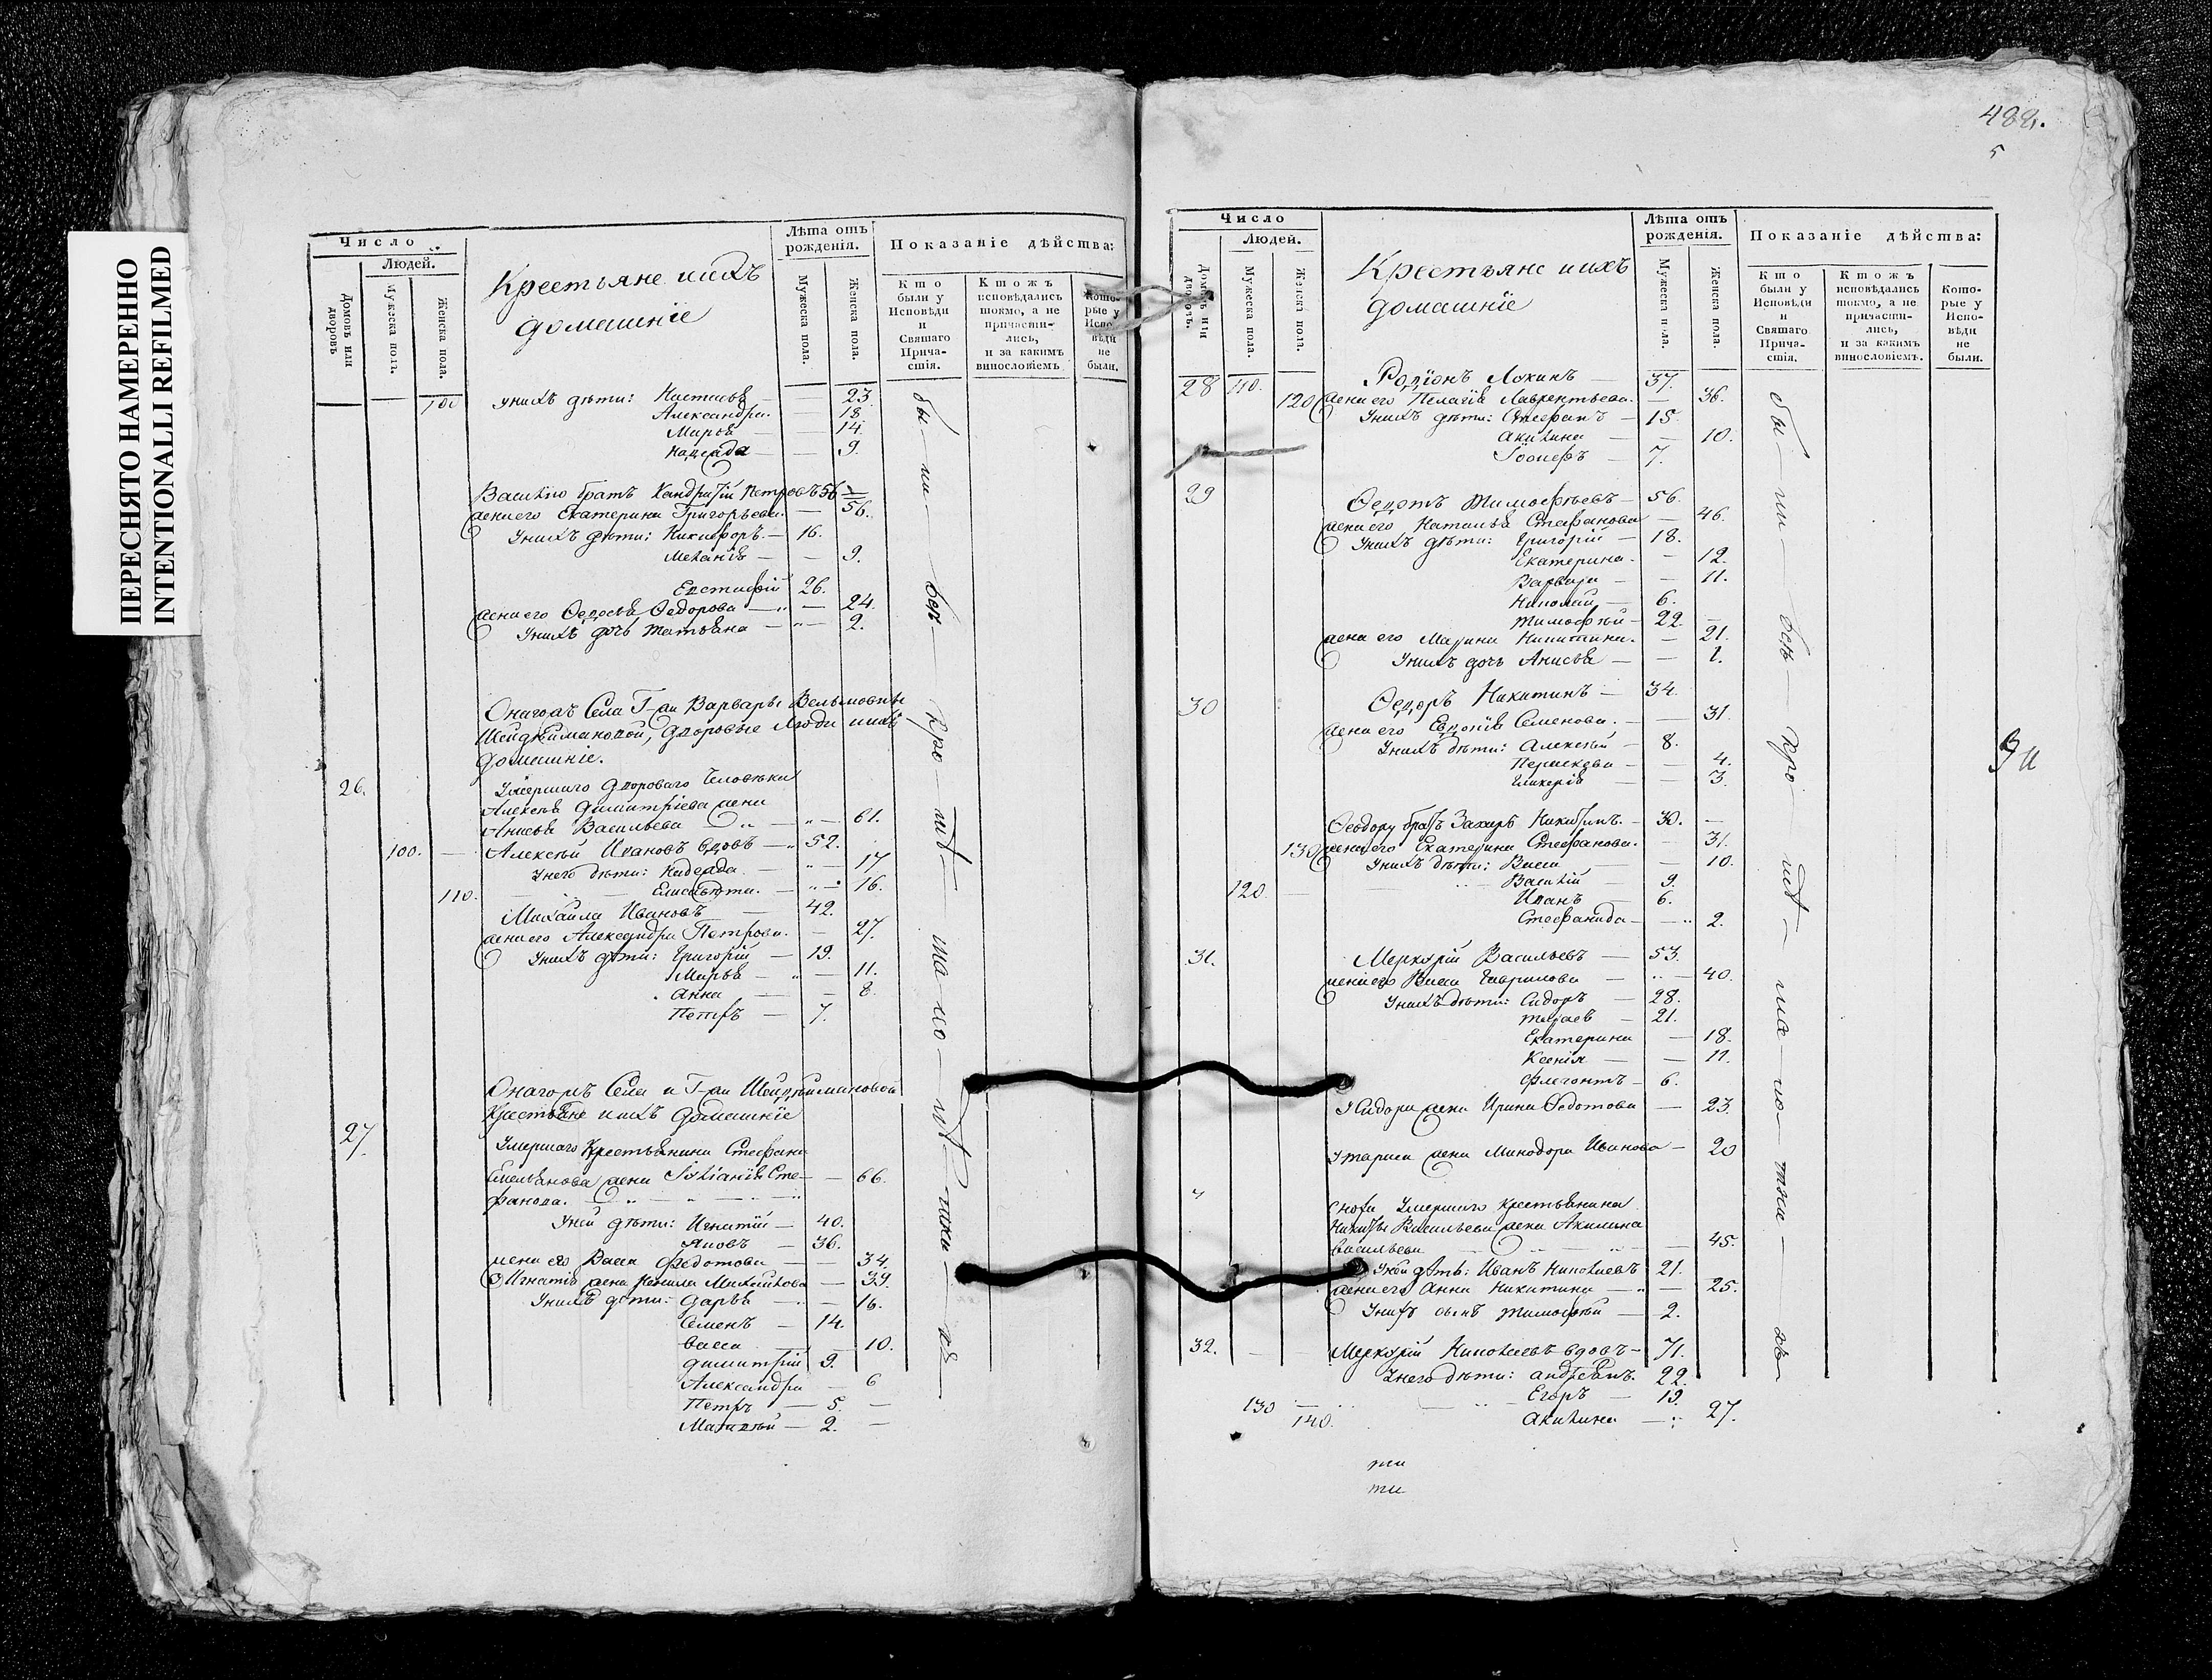 ПЕРЕСНЯТО НАМЕРЕННО
INTENTIONALLI REFILMED
Число
Людей.
Домовъ или дворовъ
Мужеска пола.
Женска пола.
Крестьяне ихъ
домашніе
Лѣта отъ рожденія.
Мужеска пола.
Женска пола.
Показаніе дѣйства:
Кто были у Исповѣди и Святаго Причастія.
Ктожъ исповѣдались токмо, а не причастились, и за какимъ винословіемъ
Которые у Исповѣди не были.
100 Унихъ дѣти: Настасья — 23.
Александра — 18
Марья — 14.
Надежда — 9.
Василію братъ Петровъ 56
жена его Екатерина Григорьева — 56.
Унихъ дѣти: Никифоръ — 16.
Меланія — 9.
Евстафій 26.
жена его Ѳедосья Ѳедорова — 24.
Унихъ дочь Татьяна — 2.
Онагожъ Села Г-жи Варвары
дворовые люди ихъ
домашніе.
26. Умершаго двороваго человѣка
Алексея Димитріева жена
Анисья Васильева — 61.
100. Алексѣй Ивановъ вдовъ — 52.
Унего дѣти: Надежда — 17
110. Елисавета — 16.
Михайла Ивановъ 42.
жена его Александра Петрова — 27.
Унихъ дѣти: Григорій — 19.
Марья — 11.
Анна — 8.
Петръ — 7.
Онагожъ Села и Г-жи
Крестьяне ихъ домашніе
27. Умершаго Крестьянина Стефана
Емельянова жена Іуліанія Сте- 66.
фанова.
Уней дѣти: Игнатій — 40.
Яковъ — 36.
жена его Васса Федотова — 34.
Игнатія жена Михайлова — 39.
Унихъ дѣти: Дарья — 16.
Семенъ — 14.
Васса 10.
Димитрій 9.
Александра — 6
Петръ — 5. —
Матвей — 2. —
бы—ли—вси—
488.
5
Число
Людей.
Домовъ или дворовъ.
Мужеска пола.
Женска пола.
Крестьяне ихъ
домашніе
Лѣта отъ рожденія.
Мужеска пола.
Женска пола.
Показаніе дѣйства:
Кто были у Исповѣди и Святаго Причастія.
Ктожъ исповѣдались токмо, а не причастились, и за какимъ винословіемъ.
Которые у Исповѣди не были.
28 110. Родіонъ Лукинъ — 37.
120 жена его Пелагія Лаврентьева — 36.
Унихъ дѣти: Стефанъ — 15.
Акилина — 10.
7.
29 Ѳедотъ Тимофѣевъ — 56.
жена его Наталья Стефанова — 46.
Унихъ дѣти: Григорій — 18.
Екатерина — 12.
Варвара — 11.
Николай — 6.
Тимофѣй — 22. —
жена его Марина Никитина — 21.
Унихъ дочь Анисья — 1.
30 Ѳедоръ Никитинъ — 34.
жена его Евдокія Семенова — 31.
Унихъ дѣти: Алексѣй — 8.
4.
Гликерія — 3.
Ѳеодору братъ Захаръ Никитинъ — 30. —
130 жена его Екатерина Стефанова — 31.
Унихъ дѣти: Васса — 10.
120 Василій — 9.
Иванъ — 6.
Стефанида — 2.
31. Меркурій Васильевъ — 53.
жена его Васса Гаврилова — 40.
Унихъ дѣти: Сидоръ — 28.
21.
Екатерина — 18.
Ксенія — 11.
Флегонтъ — 6.
Усидора жена Ирина Федотова — 23.
жена Минодора Иванова — 20
Сноха Умершаго крестьянина
Никиты Васильева жена Акилина
Васильева — 45.
Уней дѣти: Иванъ 21.
жена его Анна Никитина — 25.
Унихъ сынъ Тимофѣй — 2.
32. Меркурій вдовъ — 71.
Унего дѣти: 22.
130 Егоръ — 19.
140. Акилина — 27.
бы—ли—вси—